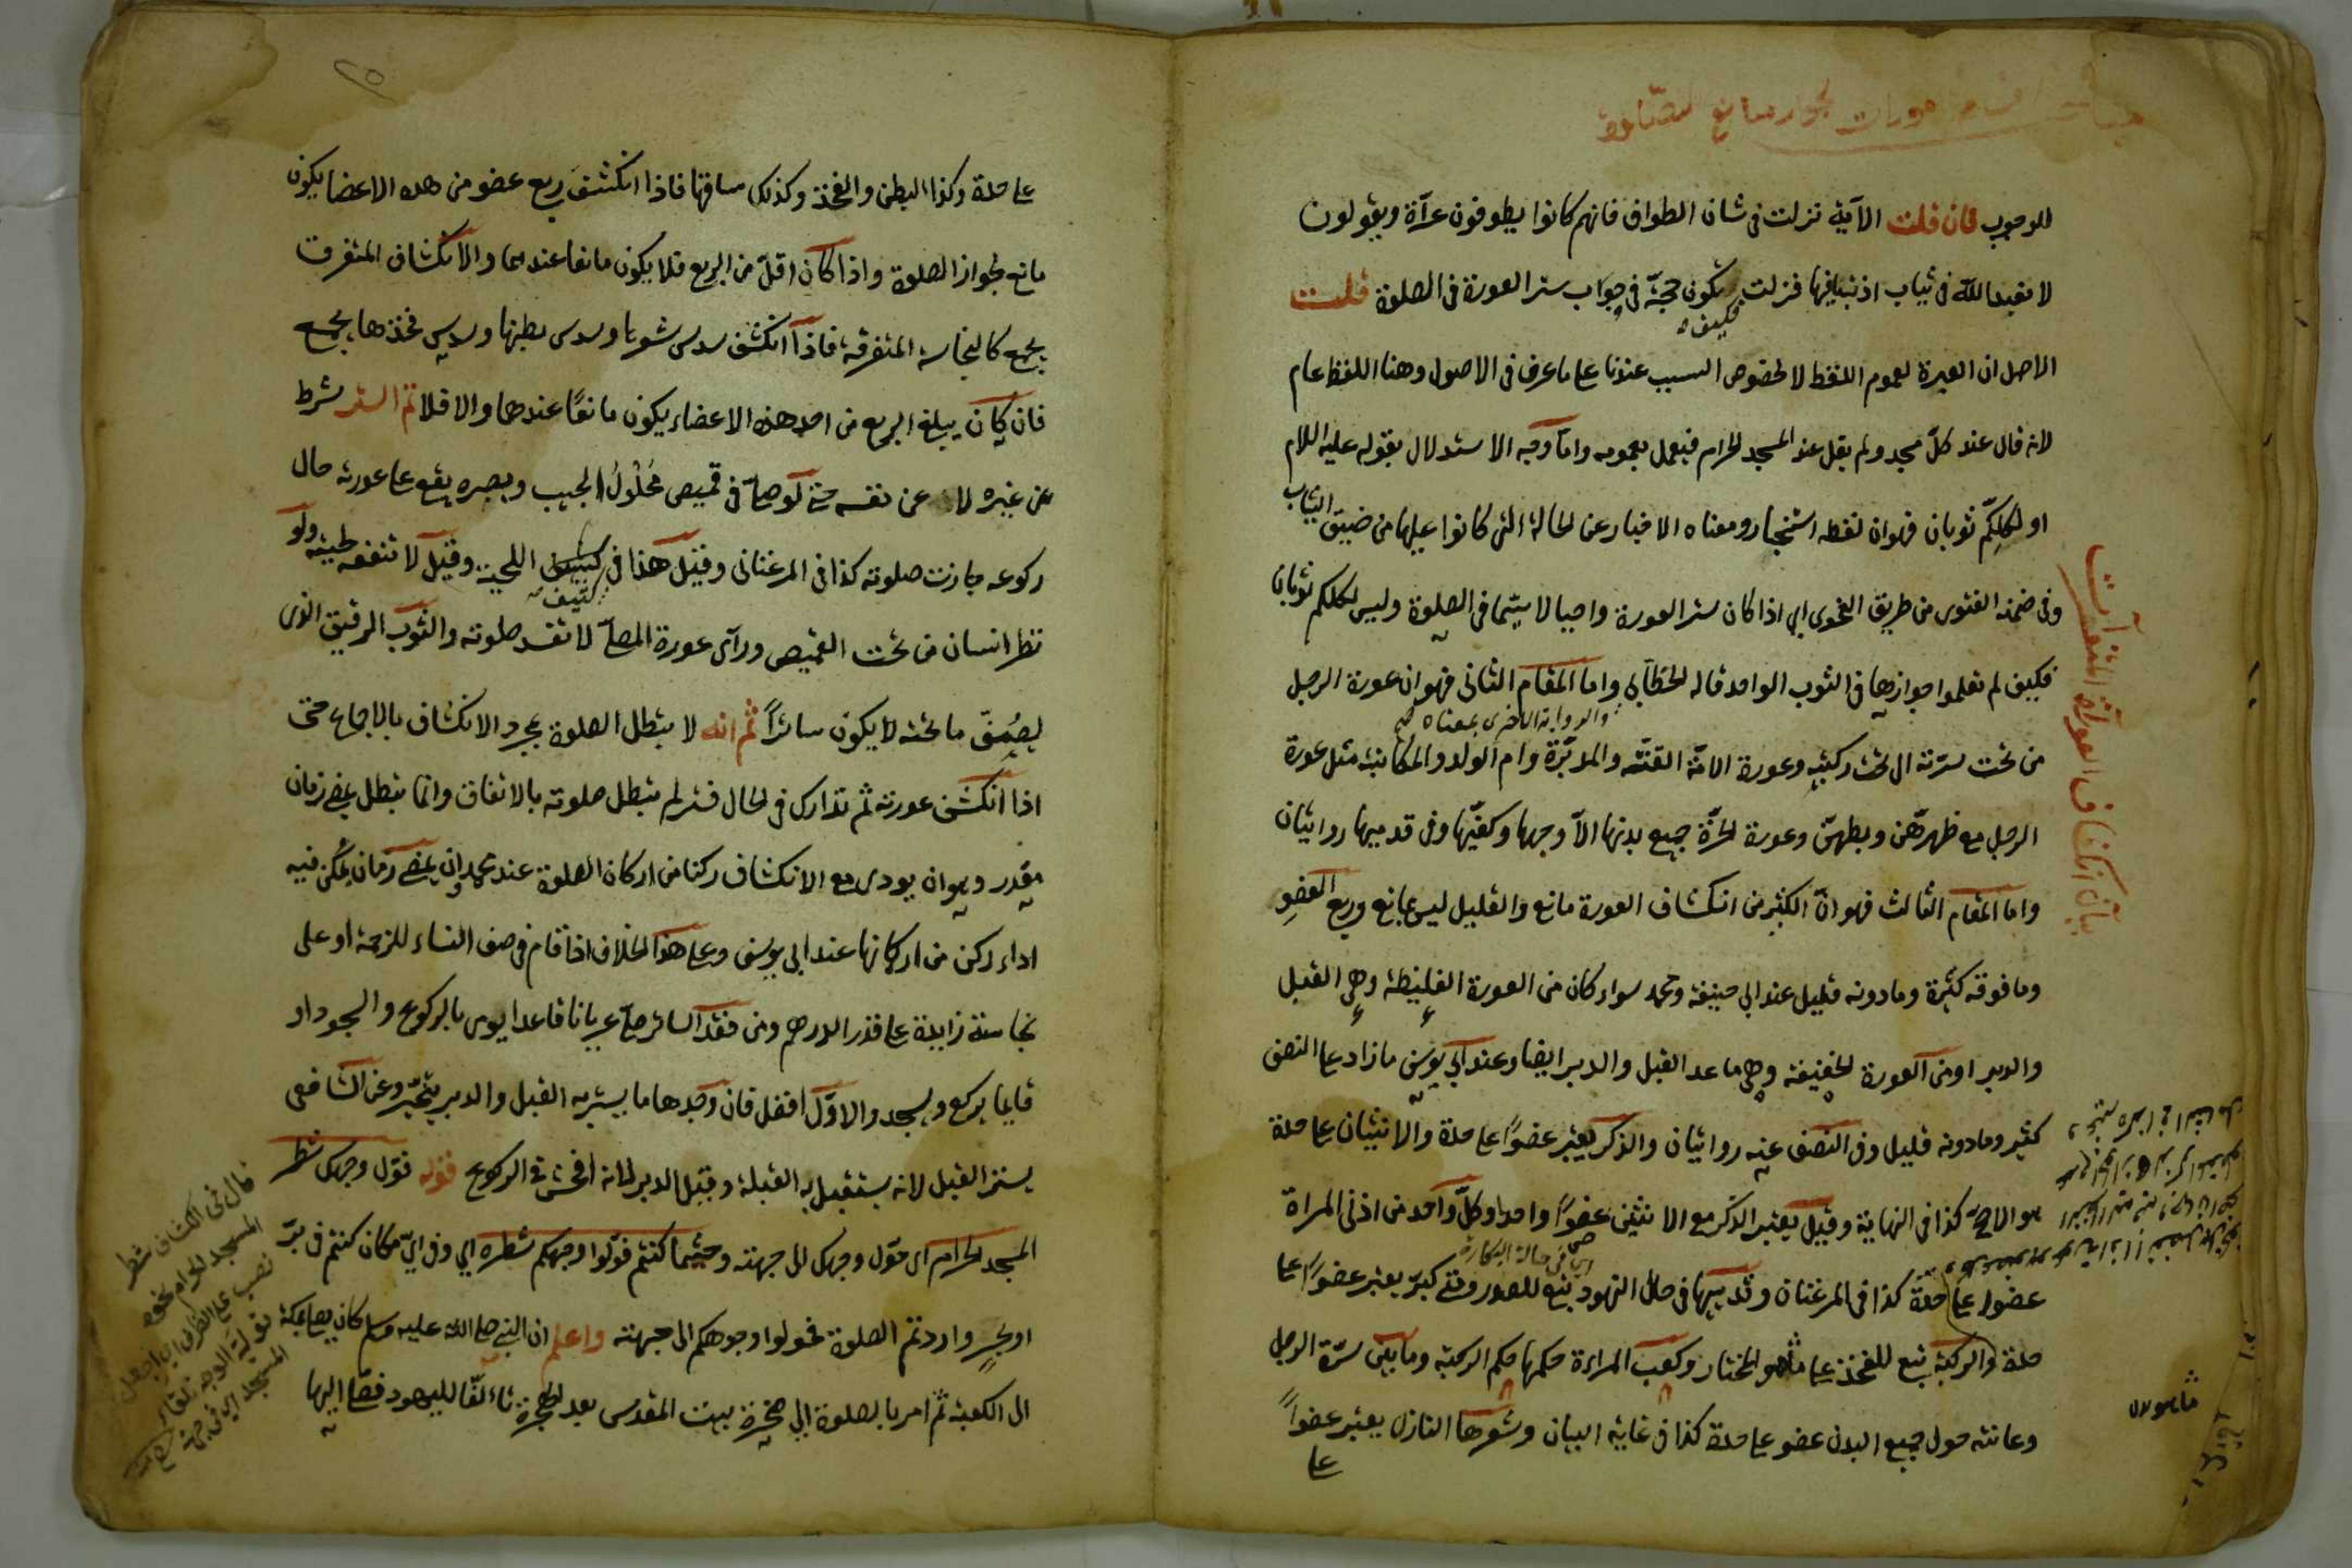 للوجوب فان قلت الآية نزلت فى شان الطواف فانهم كانوا يطوفون عراة ويقولون
لا نعبد الله فى ثياب اذنبنا فيها فنزلت فكيف يكون حجة فى جواب ستر العورة فى الصلوة قلت
الاصل ان العبرة لعموم اللفظ لا لخصوص السبب عندنا على ما عرف فى الاصول وهنا اللفظ عام
لانه قال عند كلّ مسجد ولم يقل عند المسجد الحرام فيعمل بعمومه وامّا وجه الاستدلال بقوله عليه اللام
او لكلكّم ثوبان فهو ان لفظه استخبار ومعناه الاخبار عن الحالة التى كانوا عليها من ضيق الثياب
وفى ضمنه الفتوى من طريق الفحوى اى اذا كان ستر العورة واجبا لا سيّما فى الصلوة وليس لكلكم ثوبان
فكيف لم تعلموا جوازها فى الثوب الواحد قاله الخطّابى واما المقام الثانى فهو ان عورة الرجل
والرواية الاخرى بمعناه
من تحت سرّته الى تحت ركبتيه وعورة الامة القنّة والمدبّرة وام الولد والمكاتبة مثل عورة
الرجل مع ظهرهنّ وبطهنّ وعورة الحرّة جميع بدنها الاّ وجهها وكفّيها وفى قدميها روايتان
واما المقام الثالث فهو انّ الكثير من انكشاف العورة مانع والقليل ليس بمانع وربع العضو
وما فوقه كثيرة وما دونه قليل عند ابى حنيفة ومحمد سواء كان من العورة الغليظة وهى القبل
والدبر او من العورة الخفيفة وهى ما عدا القبل والدبر ايضا وعند ابى يوسف ما زاد على النصف
كثير وما دونه قليل وفى النصف عنه روايتان والذكر يعتبر عضوًا على حدة والانثيان على حدة
هو الاصح كذا فى النهاية وقيل يعتبر الذكر مع الانثيين عضوًا واحدا وكلّ واحد من اذنى المراة
اى فى حالة البكارة
عضو على حدة كذا فى المرغنان وثديها فى حال النهود تبع للصدر ومتى كبرّ يعتبر عضوًا على
حدة والركبة تبع للفخذ على ما هو المختار وكعب المراءة حكمها حكم الركبة وما بين سرّة الرجل
وعانته حول جميع البدن عضو على حدة كذا فى غاية البيان وشعرها النازل يعتبر عضوًا
على
بيان انكشاف العورة المتفرقات
على حدة وكذا البطن والفخذ وكذلك ساقها فاذا انكشف ربع عضو من هذه الاعضا يكون
مانع لجواز الصلوة واذا كان اقلّ من الربع فلا يكون مانعا عندهما والانكشاف المتفرق
يجمع كالنجاسة المتفرقة فاذا انكشف سدس شعرها وسدس بطنها وسدس فخذها يجمع
فان كان يبلغ الربع من احد هذه الاعضاء يكون مانعًا عندهما والا فلا ثم الستر شرط
عن غيره لا عن نفسه حتى لو صلّى فى قميص مَحْلُولُ الجيب وبصره يقع على عورته حال
ركوعه جازت صلوته كذا فى المرغنانى وقيل هذا فى كثيف اللحية وقيل لا تنفعه لحيته ولو
نظر انسان من تحت القميص ورآى عورة المصلّى لا تفسد صلوته والثوب الرقيق الذى
يصِفُ ما تحته لا يكون ساترًا ثم انه لا يبطل الصلوة بمجرد الانكشاف بالاجماع حتى
اذا انكشف عورته ثم تدارك فى الحال فستر لم يبطل صلوته بالاتفاق وانما يبطل بمضى زمان
مقدر وهو ان يودى مع الانكشاف ركنا من اركان الصلوة عند محمد وان يمضى زمان يُمكن فيه
اداء ركن من اركانها عند ابى يوسف وعلى هذا الخلاف اذا قام فى صف النساء للزحمة او على
نجاسة زايدة على قدر الدرهم ومن فقد الساتر صلّى عريانا قاعدا يومى بالركوع والسجود او
قايما يركع ويسجد والاوّل افضل فان وجد ها ما يستر به القبل والدبر يتخيّر وعن الشافعى
يستر القبل لانه يستقبل به القبلة وقيل الدبر لانه افحش فى الركوع قوله فولّ وجهك شطر
المسجد الحرام اى حوّل وجهك الى جهته وحيثما كنتم فولّوا وجوهكم شطره اى وفى اىّ مكان كنتم فى برّ
او بحرٍ واردتم الصلوة فحولوا وجوهكم الى جهته واعلم ان النبى صلى الله عليه وسلم كان يصلى بمكة
الى الكعبة ثم امر بالصلوة الى صخرة بيت المقدس بعد الهجرة تاءلّفا لليهود فصلّى اليها
قال فى الكشاف شطر
المسجد الحرام نحوه